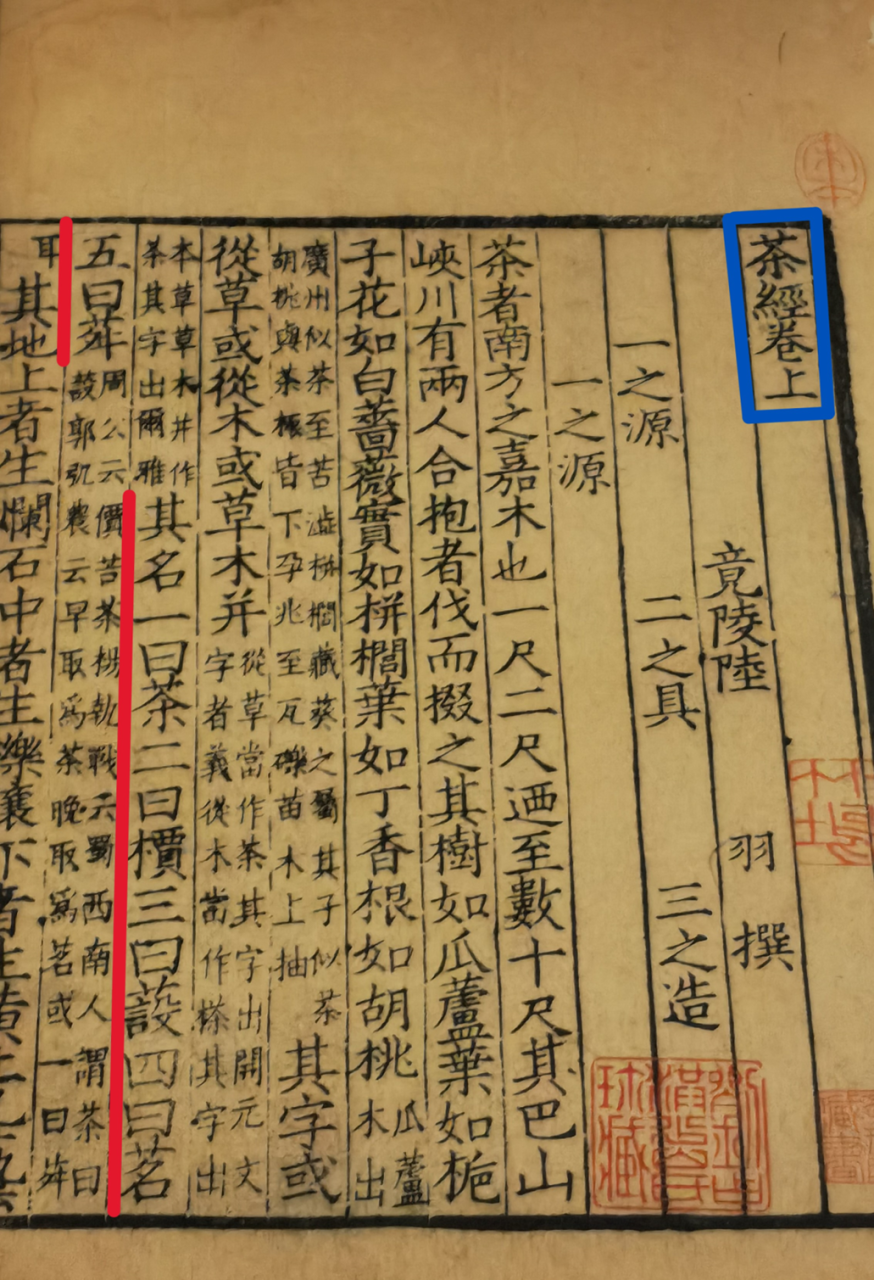 茶經卷上
竟陵陸 羽 撰
一之源 二之具 三之造
一之源
茶者南方之嘉木也一尺二尺迺至數十尺其巴山
峽川有兩人合抱者伐而掇之其樹如瓜蘆葉如梔
子花如白薔薇實如栟櫚葉如丁香根如胡桃
瓜蘆
木出
廣州似茶至苦澁栟櫚藏葵之屬其子似茶
胡桃與茶根皆下孕兆至瓦礫苗木上抽
其字或
從草或從木或草木并
從草當作茶其字出開元文
字者義從木當作㮆其字出
本草草木并作
茶其字出爾雅
其名一曰茶二曰檟三曰蔎四曰茗
五曰荈
周公云價苦茶楊執戟云蜀西南人謂茶曰
蔎郭弘農云早取為茶晚取為茗或一曰荈
耳
其地上者生爛石中者生櫟襄下者生黃土